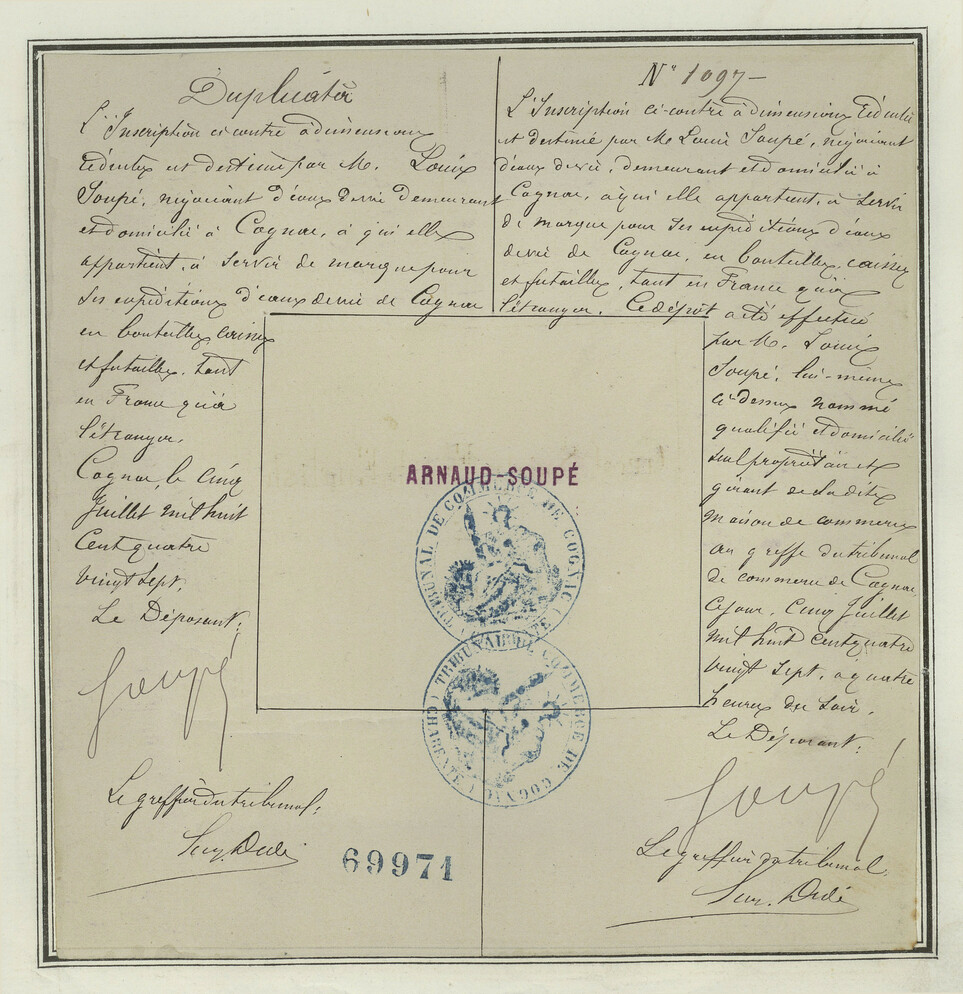 Duplicata
L'Inscription ci-contre à dimensions
réduites est destiné par M. Louis
Soupé, négociant d'eaux de vie demeurant
et domicilié à Cognac, à qui elle
appartient, à servir de marque pour
ses expéditions d'eaux de vie de Cognac
en bouteilles, caisses
et futailles, tant
en France qu'à
l'étranger.
Cognac, le cinq
Juillet mil huit
cent quatre
vingt sept,
Le Déposant:
Soupé
Le greffier du tribunal:
69971
N° 1097
L'Inscription ci-contre à dimensions réduites
est destiné par Mr Louis Soupé, négociant
d'eaux de vie, demeurant et domicilié à
Cognac, à qui elle appartient, à servir
de marque pour ses expéditions d'eaux
de vie de Cognac, en bouteilles, caisses
et futailles, tant en France qu'à
l'étranger. Ce dépôt a été effectué
par M. Louis
Soupé, lui-même
ci-dessus nommé
qualifié et domicilié
seul propriétaire et
gérant de la dite
maison de commerce
au greffe du tribunal
de commerce de Cognac
ce jour, cinq Juillet
mil huit cent quatre
vingt sept, à quatre
heures du soir.
Le Déposant:
Soupé
Le greffier du tribunal:
ARNAUD-SOUPÉ
TRIBUNAL DE COMMERCE DE COGNAC (CHARENTE)
TRIBUNAL DE COMMERCE DE COGNAC (CHARENTE)